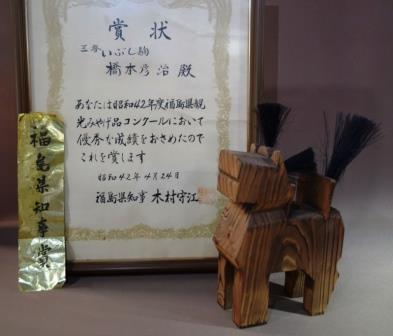 賞状
三春いぶし駒
橋本彦治殿
あなたは昭和42年度福島県観
光みやげ品コンクールにおいて
優秀な成績をおさめたので
これを賞します
昭和42年4月24日
福島県知事 木村守江
福島県知事賞